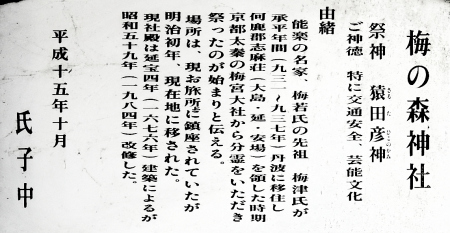 梅の森神社
祭神 猿田彦神
ご神徳 特に交通安全、芸能文化
由緒
能楽の名家、梅若氏の先祖 梅津氏が
承平年間(九三一〜九三七年)丹波に移住し
何鹿郡志麻荘(大島・延・安場)を領した時期
京都太秦の梅宮大社から分霊をいただき
祭ったのが始まりと伝える。
場所は、現お旅所に鎮座されていたが
明治初年、現在地に移された。
現社殿は延宝四年(一六七六年)建築によるが
昭和五十九年(一九八四年)改修した。
平成十五年十月
氏子中